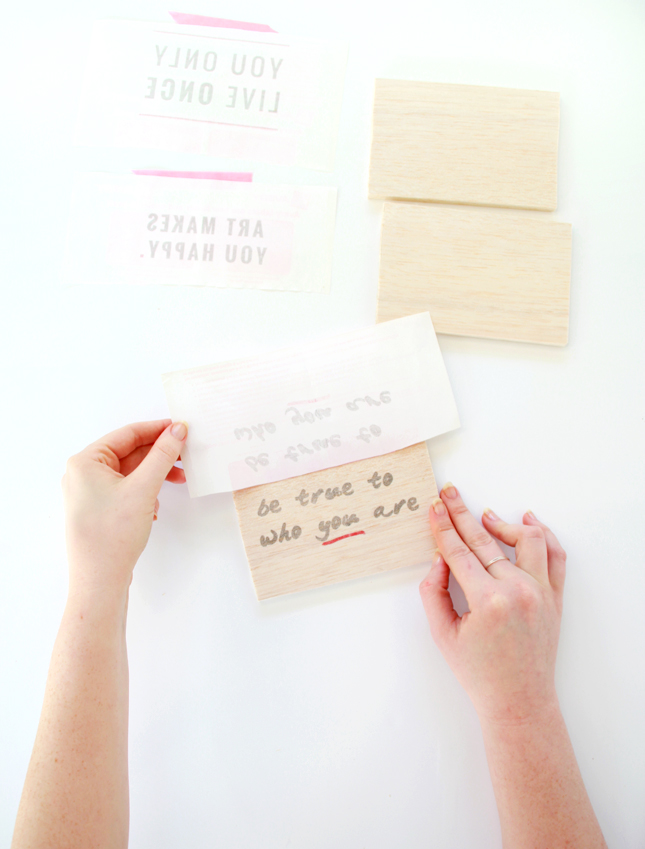 YOU ONLY
LIVE ONCE
ART MAKES
YOU HAPPY.
who you are
be true to
be true to
who you are